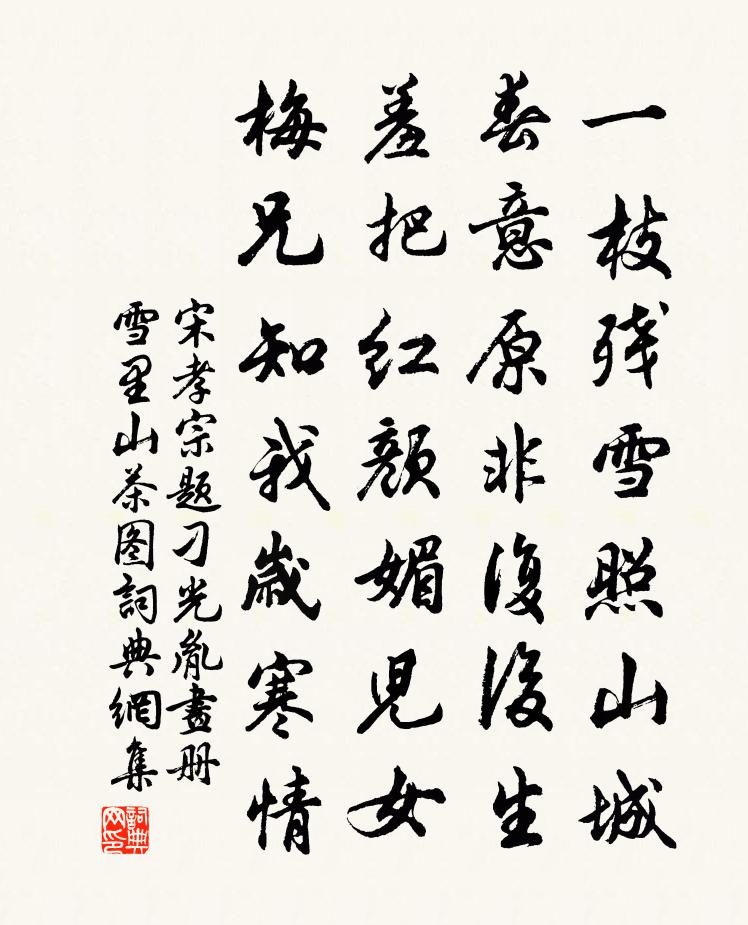 一枝残雪照山城
春意原非復後生
羞把红顏媚児女
梅兄知我歲寒情
宋孝宗題刁光胤畫册
雪里山茶图詞典網集
詞典
网印